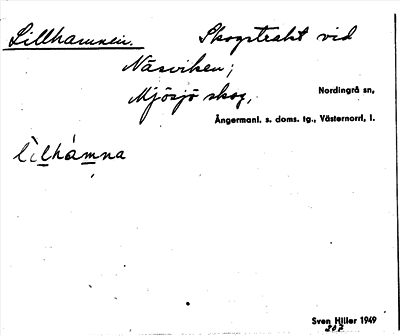 Lillhamnen. Skogstrakt vid
Näsviken;
Mjösjö skog, Nordingrå sn,
Ångermanl. s. doms. tg., Västernorrl, l.
lìlhámna
Sven Hiller 1949
207